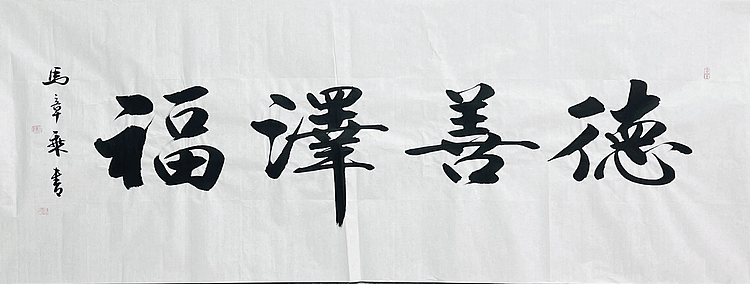 德善澤福
馬章乘書